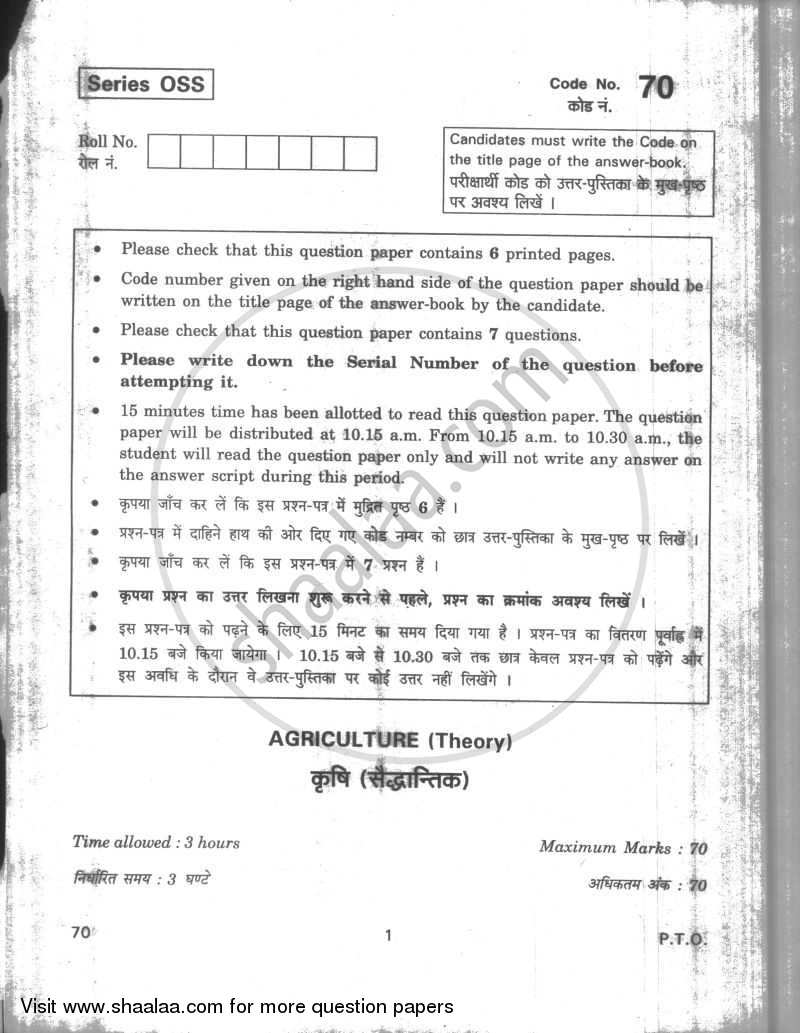 Series OSS
Code No. 70
कोड नं.
Roll No.
रोल नं.
Candidates must write the Code on
the title page of the answer-book.
परीक्षार्थी कोड को उत्तर-पुस्तिका के मुख-पृष्ठ
पर अवश्य लिखें ।
• Please check that this question paper contains 6 printed pages.
• Code number given on the right hand side of the question paper should be
written on the title page of the answer-book by the candidate.
• Please check that this question paper contains 7 questions.
• Please write down the Serial Number of the question before
attempting it.
• 15 minutes time has been allotted to read this question paper. The question
paper will be distributed at 10.15 a.m. From 10.15 a.m. to 10.30 a.m., the
student will read the question paper only and will not write any answer on
the answer script during this period.
• कृपया जाँच कर लें कि इस प्रश्न-पत्र में मुद्रित पृष्ठ 6 हैं ।
• प्रश्न-पत्र में दाहिने हाथ की ओर दिए गए कोड नम्बर को छात्र उत्तर-पुस्तिका के मुख-पृष्ठ पर लिखें ।
• कृपया जाँच कर लें कि इस प्रश्न-पत्र में 7 प्रश्न हैं ।
• कृपया प्रश्न का उत्तर लिखना शुरू करने से पहले, प्रश्न का क्रमांक अवश्य लिखें ।
• इस प्रश्न-पत्र को पढ़ने के लिए 15 मिनट का समय दिया गया है । प्रश्न-पत्र का वितरण पूर्वाह्न में
10.15 बजे किया जायेगा । 10.15 बजे से 10.30 बजे तक छात्र केवल प्रश्न-पत्र को पढ़ेंगे और
इस अवधि के दौरान वे उत्तर-पुस्तिका पर कोई उत्तर नहीं लिखेंगे ।
shaalaa.com
AGRICULTURE (Theory)
कृषि (सैद्धान्तिक)
Time allowed : 3 hours
Maximum Marks : 70
निर्धारित समय : 3 घण्टे
अधिकतम अंक : 70
70
1
P.T.O.
Visit www.shaalaa.com for more question papers